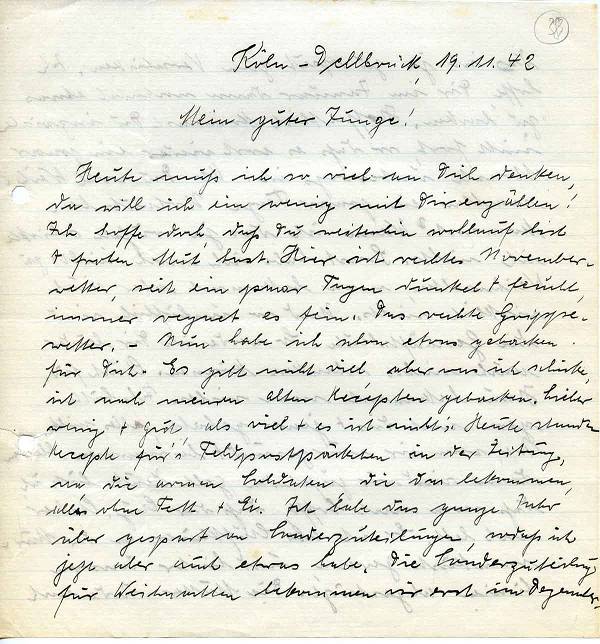 38
Köln-Dellbrück, 19.11.42
Mein guter Junge!
Heute muß ich so viel an Dich denken,
da will ich ein wenig mit Dir erzählen!
Ich hoffe doch, daß Du weiterhin wohlauf bist
& frohen Mut hast. Hier ist rechtes November-
wetter, seit ein paar Tagen dunkel & feucht,
immer regnet es fein. Das rechte Grippe-
wetter. – Nun habe ich schon etwas gebacken
für Dich. Es gibt nicht viel aber was ich schicke,
ist nach meinen alten Rezepten gebacken. Lieber
wenig & gut, als viel & es ist nichts. Heute standen
Rezepte für's Feldpostpäckchen in der Zeitung,
na die armen Soldaten die das bekommen,
alles ohne Fett & Ei. Ich habe das ganze Jahr
über gespart an Sonderzuteilungen, sodaß ich
jetzt aber auch etwas habe. Die Sonderzuteilung
für Weihnachten bekommen wir erst im Dezember,